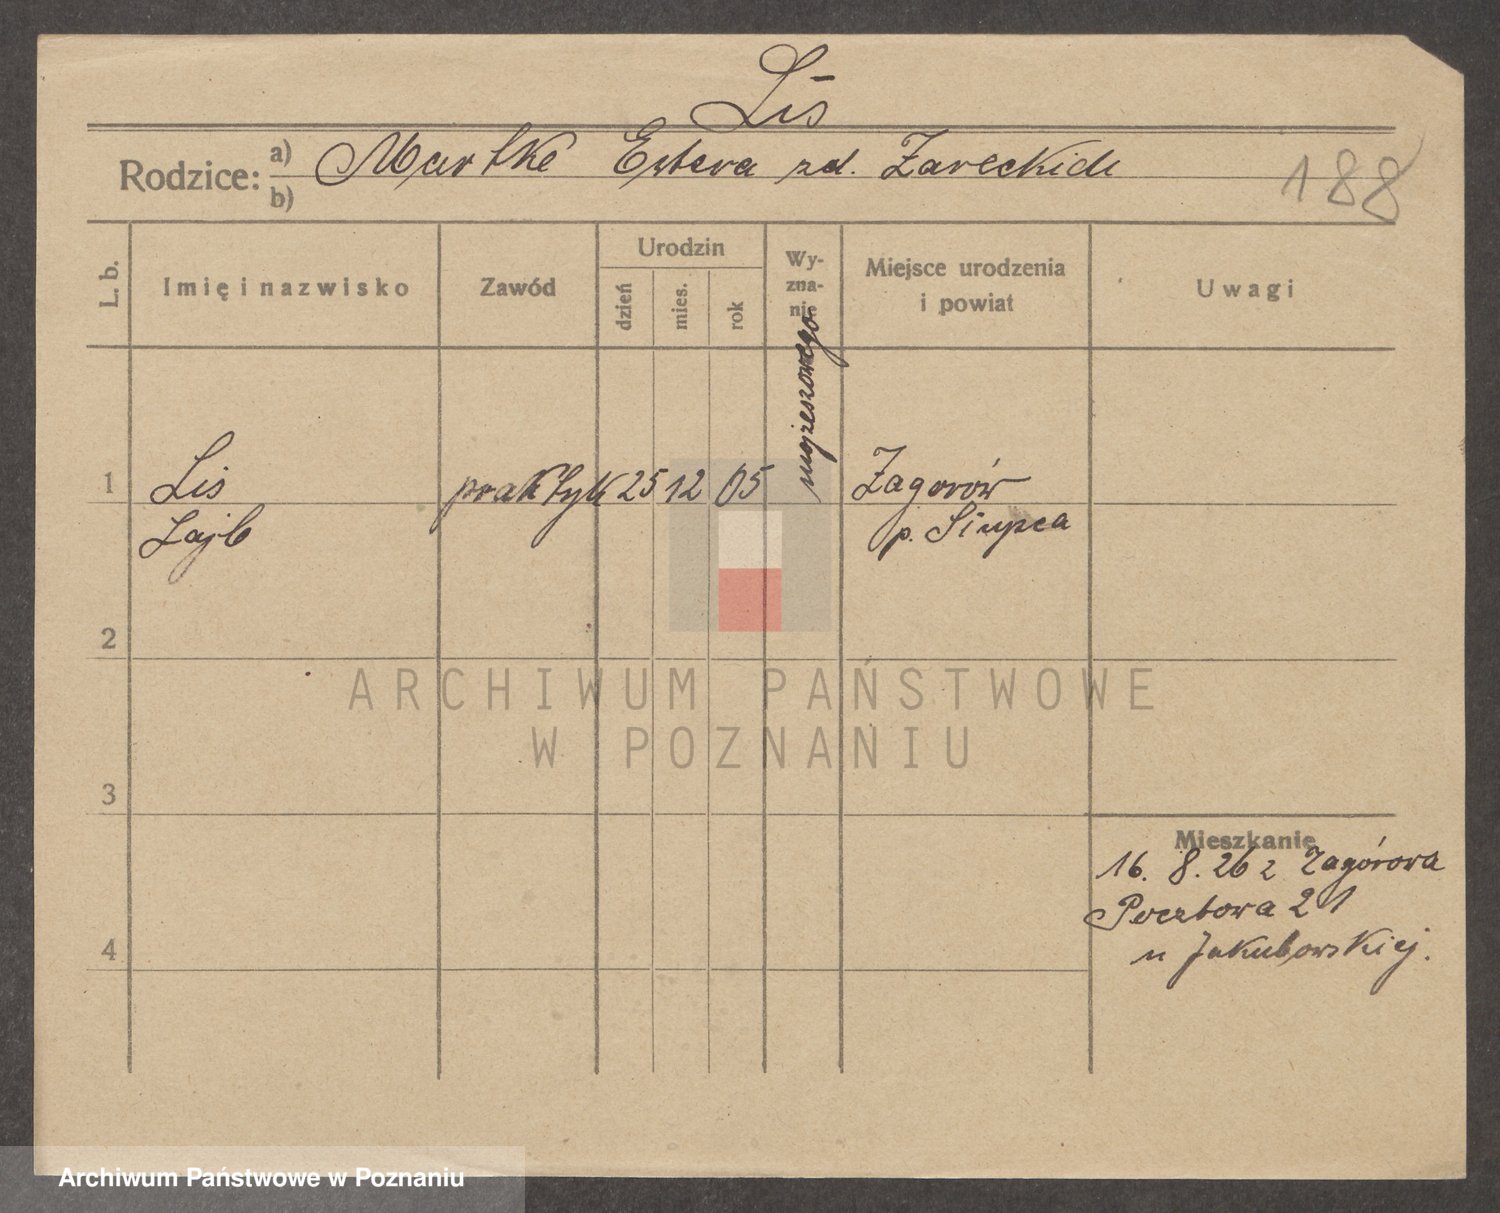 Lis
Rodzice: a) Estera zd. Zareckich
b)
188
L. b.
Imię i nazwisko
Zawód
Urodzin
dzień
mies.
rok
Wy-
zna-
nie
Miejsce urodzenia
i powiat
Uwagi
mojżeszowego
1
Lis
praktyk
25
12
05
Zagorów
Lajb
p. Słupca
2
ARCHIWUM PAŃSTWOWE
W POZNANIU
3
Mieszkanie
16. 8. 26 z Zagórowa
Pocztowa 21
u Jakubowskiej.
4
Archiwum Państwowe w Poznaniu